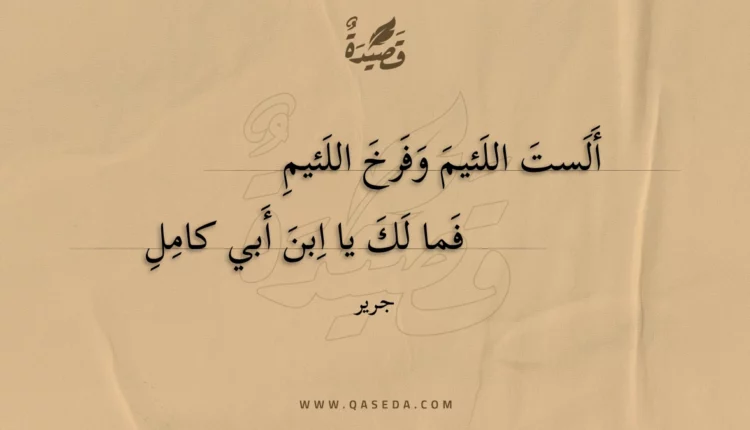 قَصِيدَةٌ
أَلَستَ اللَئيمَ وَفَرخَ اللَئيمِ
فَما لَكَ يا اِبنَ أَبي كامِلِ
جرير
WWW.QASEDA.COM